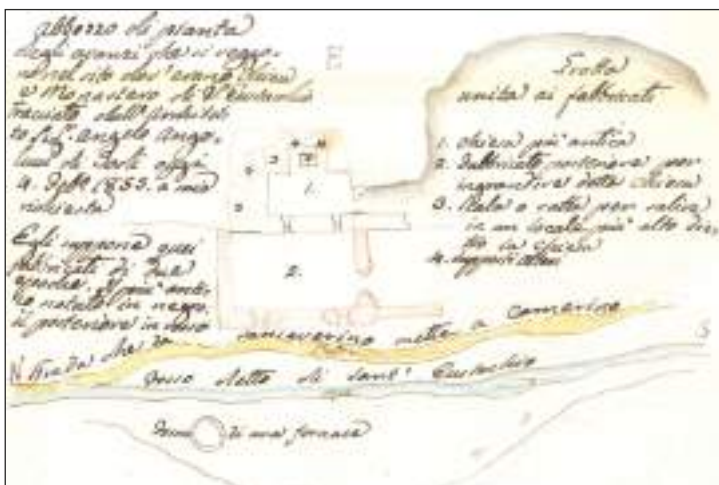 abbozzo di pianta
degli avanzi che si veggo-
no nel sito dov'erano chiesa
e Monastero di S. Eustachio
tracciato dall'Architet-
to Sig. Angelo Ango-
lucci di Todi oggi
4. 7bre 1853. a mia
richiesta
Egli suppone quei
fabbricati di due
epoche, il più antico
notato in negro,
il posteriore in rosso
Grotta
unita ai fabbricati
1. chiesa più antica
2. fabbricato posteriore per
ingrandire detta chiesa
3. Scala o ratta per salire
in un locale più alto die,
tro la chiesa
4.
3
3
4
1.
2.
N
strada che da Sanseverino mette a Camerino
S
fosso detto di Sant'Eustachio
di una fornace